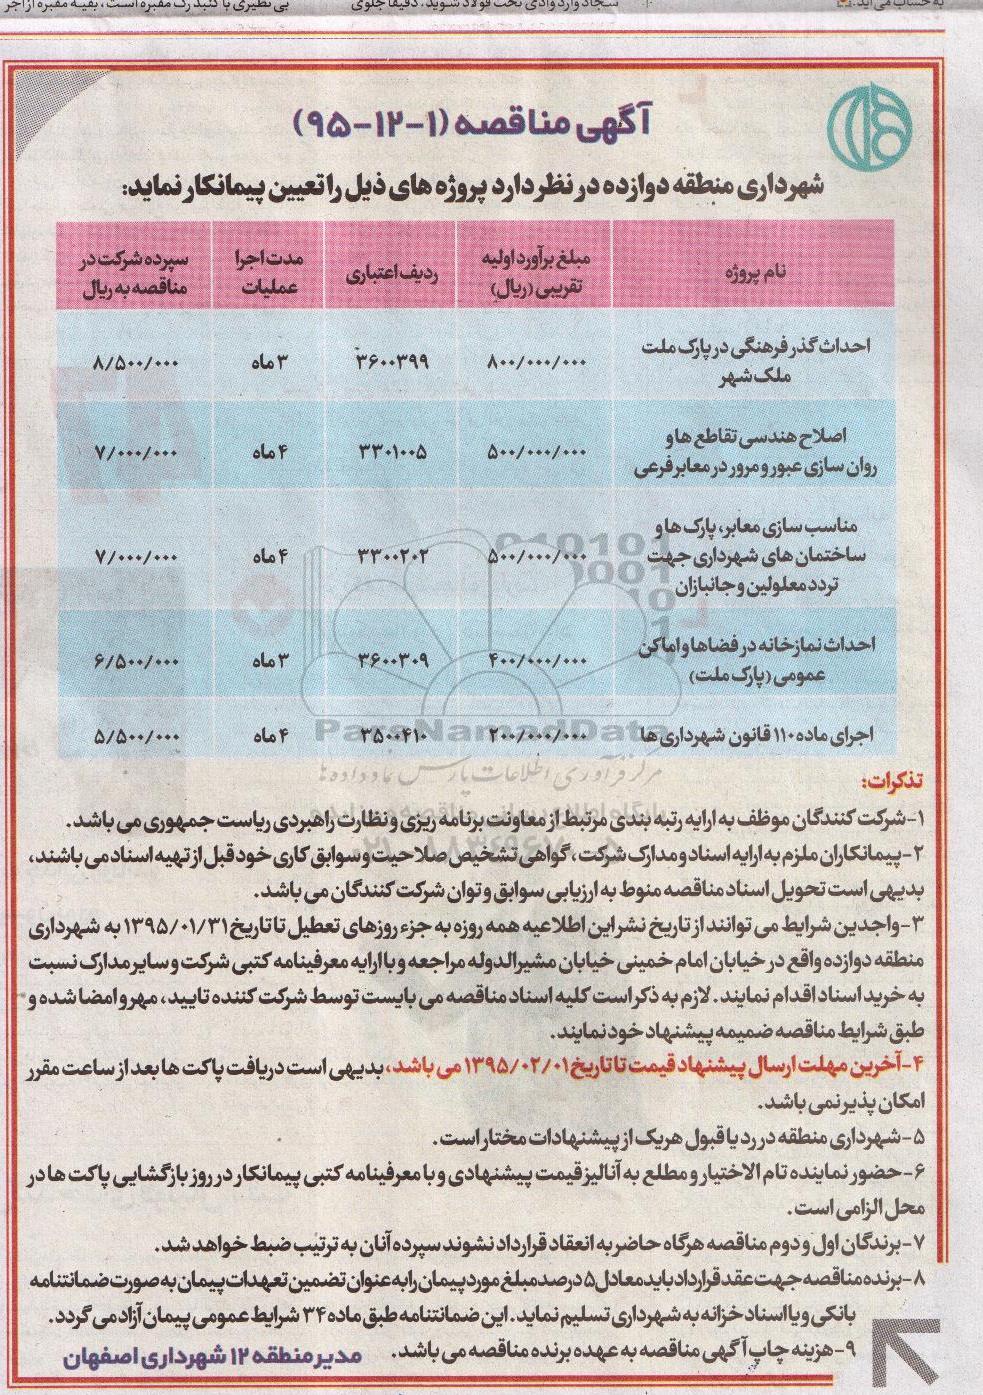 به حساب می آید.
سجاد وارد وادی تخت فولاد شوید، دقیقا جلوی
بی نظیری با گنبد رک مقبره است، بقیه مقبره از آجر
آگهی مناقصه (۱-۱۲-۹۵)
شهرداری منطقه دوازده در نظر دارد پروژه های ذیل را تعیین پیمانکار نماید:
نام پروژه
مبلغ برآورد اولیه تقریبی (ریال)
ردیف اعتباری
مدت اجرا عملیات
سپرده شرکت در مناقصه به ریال
احداث گذر فرهنگی در پارک ملت ملک شهر
۸۰۰/۰۰۰/۰۰۰
۳۶۰۰۳۹۹
۳ ماه
۸/۵۰۰/۰۰۰
اصلاح هندسی تقاطع ها و
روان سازی عبور و مرور در معابر فرعی
۵۰۰/۰۰۰/۰۰۰
۳۳۰۱۰۰۵
۴ ماه
۷/۰۰۰/۰۰۰
مناسب سازی معابر، پارک ها و
ساختمان های شهرداری جهت
تردد معلولین و جانبازان
۵۰۰/۰۰۰/۰۰۰
۳۳۰۰۲۰۲
۴ ماه
۷/۰۰۰/۰۰۰
احداث نمازخانه در فضاها و اماکن
عمومی (پارک ملت)
۴۰۰/۰۰۰/۰۰۰
۳۶۰۰۳۰۹
۳ ماه
۶/۵۰۰/۰۰۰
اجرای ماده ۱۱۰ قانون شهرداری ها
۲۰۰/۰۰۰/۰۰۰
۳۵۰۰۴۱۰
۴ ماه
۵/۵۰۰/۰۰۰
ParsNamadData
مرکز فرآوری اطلاعات پارس نماد داده ها
تذکرات:
۱-شرکت کنندگان موظف به ارایه رتبه بندی مرتبط از معاونت برنامه ریزی و نظارت راهبردی ریاست جمهوری می باشد.
۲-پیمانکاران ملزم به ارایه اسناد و مدارک شرکت، گواهی تشخیص صلاحیت و سوابق کاری خود قبل از تهیه اسناد می باشند،
بدیهی است تحویل اسناد مناقصه منوط به ارزیابی سوابق و توان شرکت کنندگان می باشد.
۳-واجدین شرایط می توانند از تاریخ نشر این اطلاعیه همه روزه به جزء روزهای تعطیل تا تاریخ ۱۳۹۵/۰۱/۳۱ به شهرداری
منطقه دوازده واقع در خیابان امام خمینی خیابان مشیرالدوله مراجعه و با ارایه معرفینامه کتبی شرکت و سایر مدارک نسبت
به خرید اسناد اقدام نمایند. لازم به ذکر است کلیه اسناد مناقصه می بایست توسط شرکت کننده تایید، مهر و امضا شده و
طبق شرایط مناقصه ضمیمه پیشنهاد خود نمایند.
۴-آخرین مهلت ارسال پیشنهاد قیمت تا تاریخ ۱۳۹۵/۰۲/۰۱ می باشد، بدیهی است دریافت پاکت ها بعد از ساعت مقرر
امکان پذیر نمی باشد.
۵-شهرداری منطقه در رد یا قبول هریک از پیشنهادات مختار است.
۶-حضور نماینده تام الاختیار و مطلع به آنالیز قیمت پیشنهادی و با معرفینامه کتبی پیمانکار در روز بازگشایی پاکت ها در
محل الزامی است.
۷-برندگان اول و دوم مناقصه هرگاه حاضر به انعقاد قرارداد نشوند سپرده آنان به ترتیب ضبط خواهد شد.
۸-برنده مناقصه جهت عقد قرارداد باید معادل ۵ درصد مبلغ مورد پیمان را به عنوان تضمین تعهدات پیمان به صورت ضمانتنامه
بانکی و یا اسناد خزانه به شهرداری تسلیم نماید. این ضمانتنامه طبق ماده ۳۴ شرایط عمومی پیمان آزاد می گردد.
۹-هزینه چاپ آگهی مناقصه به عهده برنده مناقصه می باشد.
مدیر منطقه ۱۲ شهرداری اصفهان